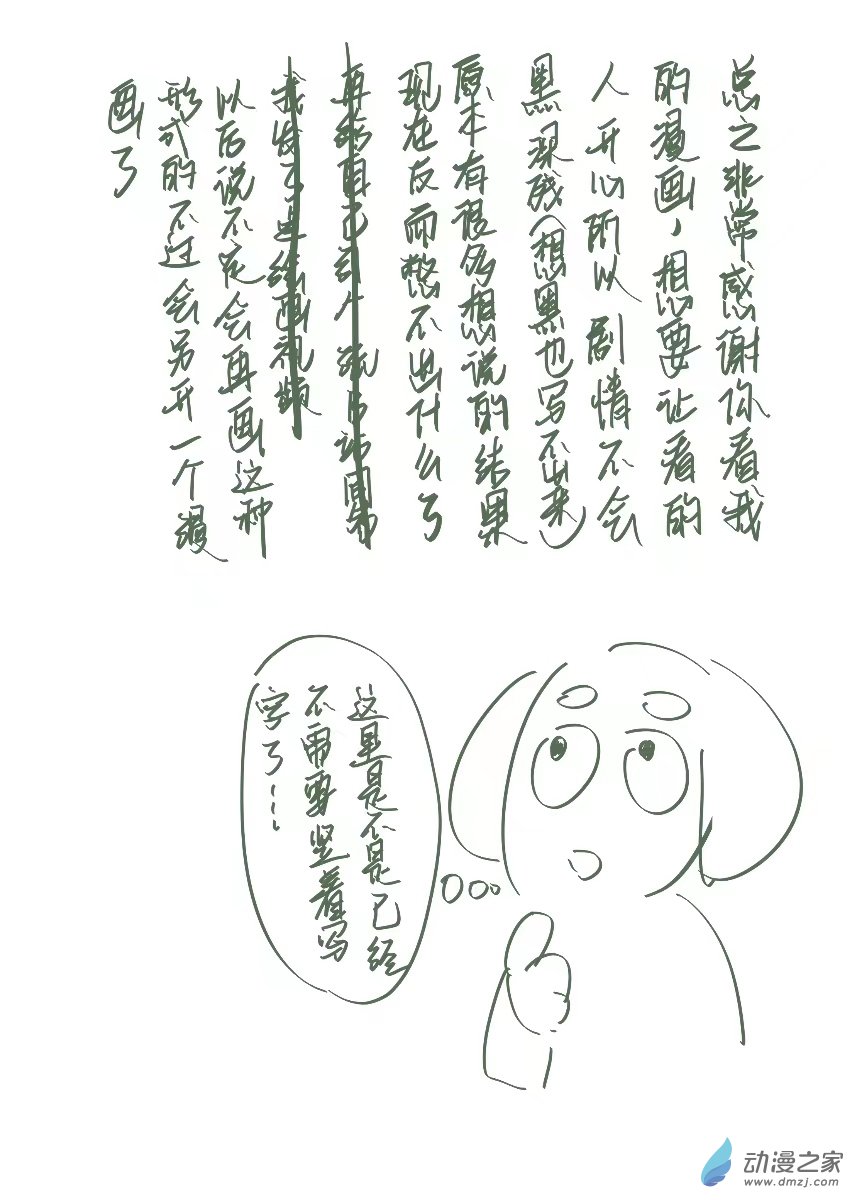 总之非常感谢你看我
的漫画，想要让看的
人开心所以剧情不会
黑深残(想黑也写不出来)
原本有很多想说的结果
现在反而憋不出什么了
以后说不定会再画这种
形式的不过会另开一个漫
画了
这里是不是已经
不需要竖着写
字了…
动漫之家
www.dmzj.com